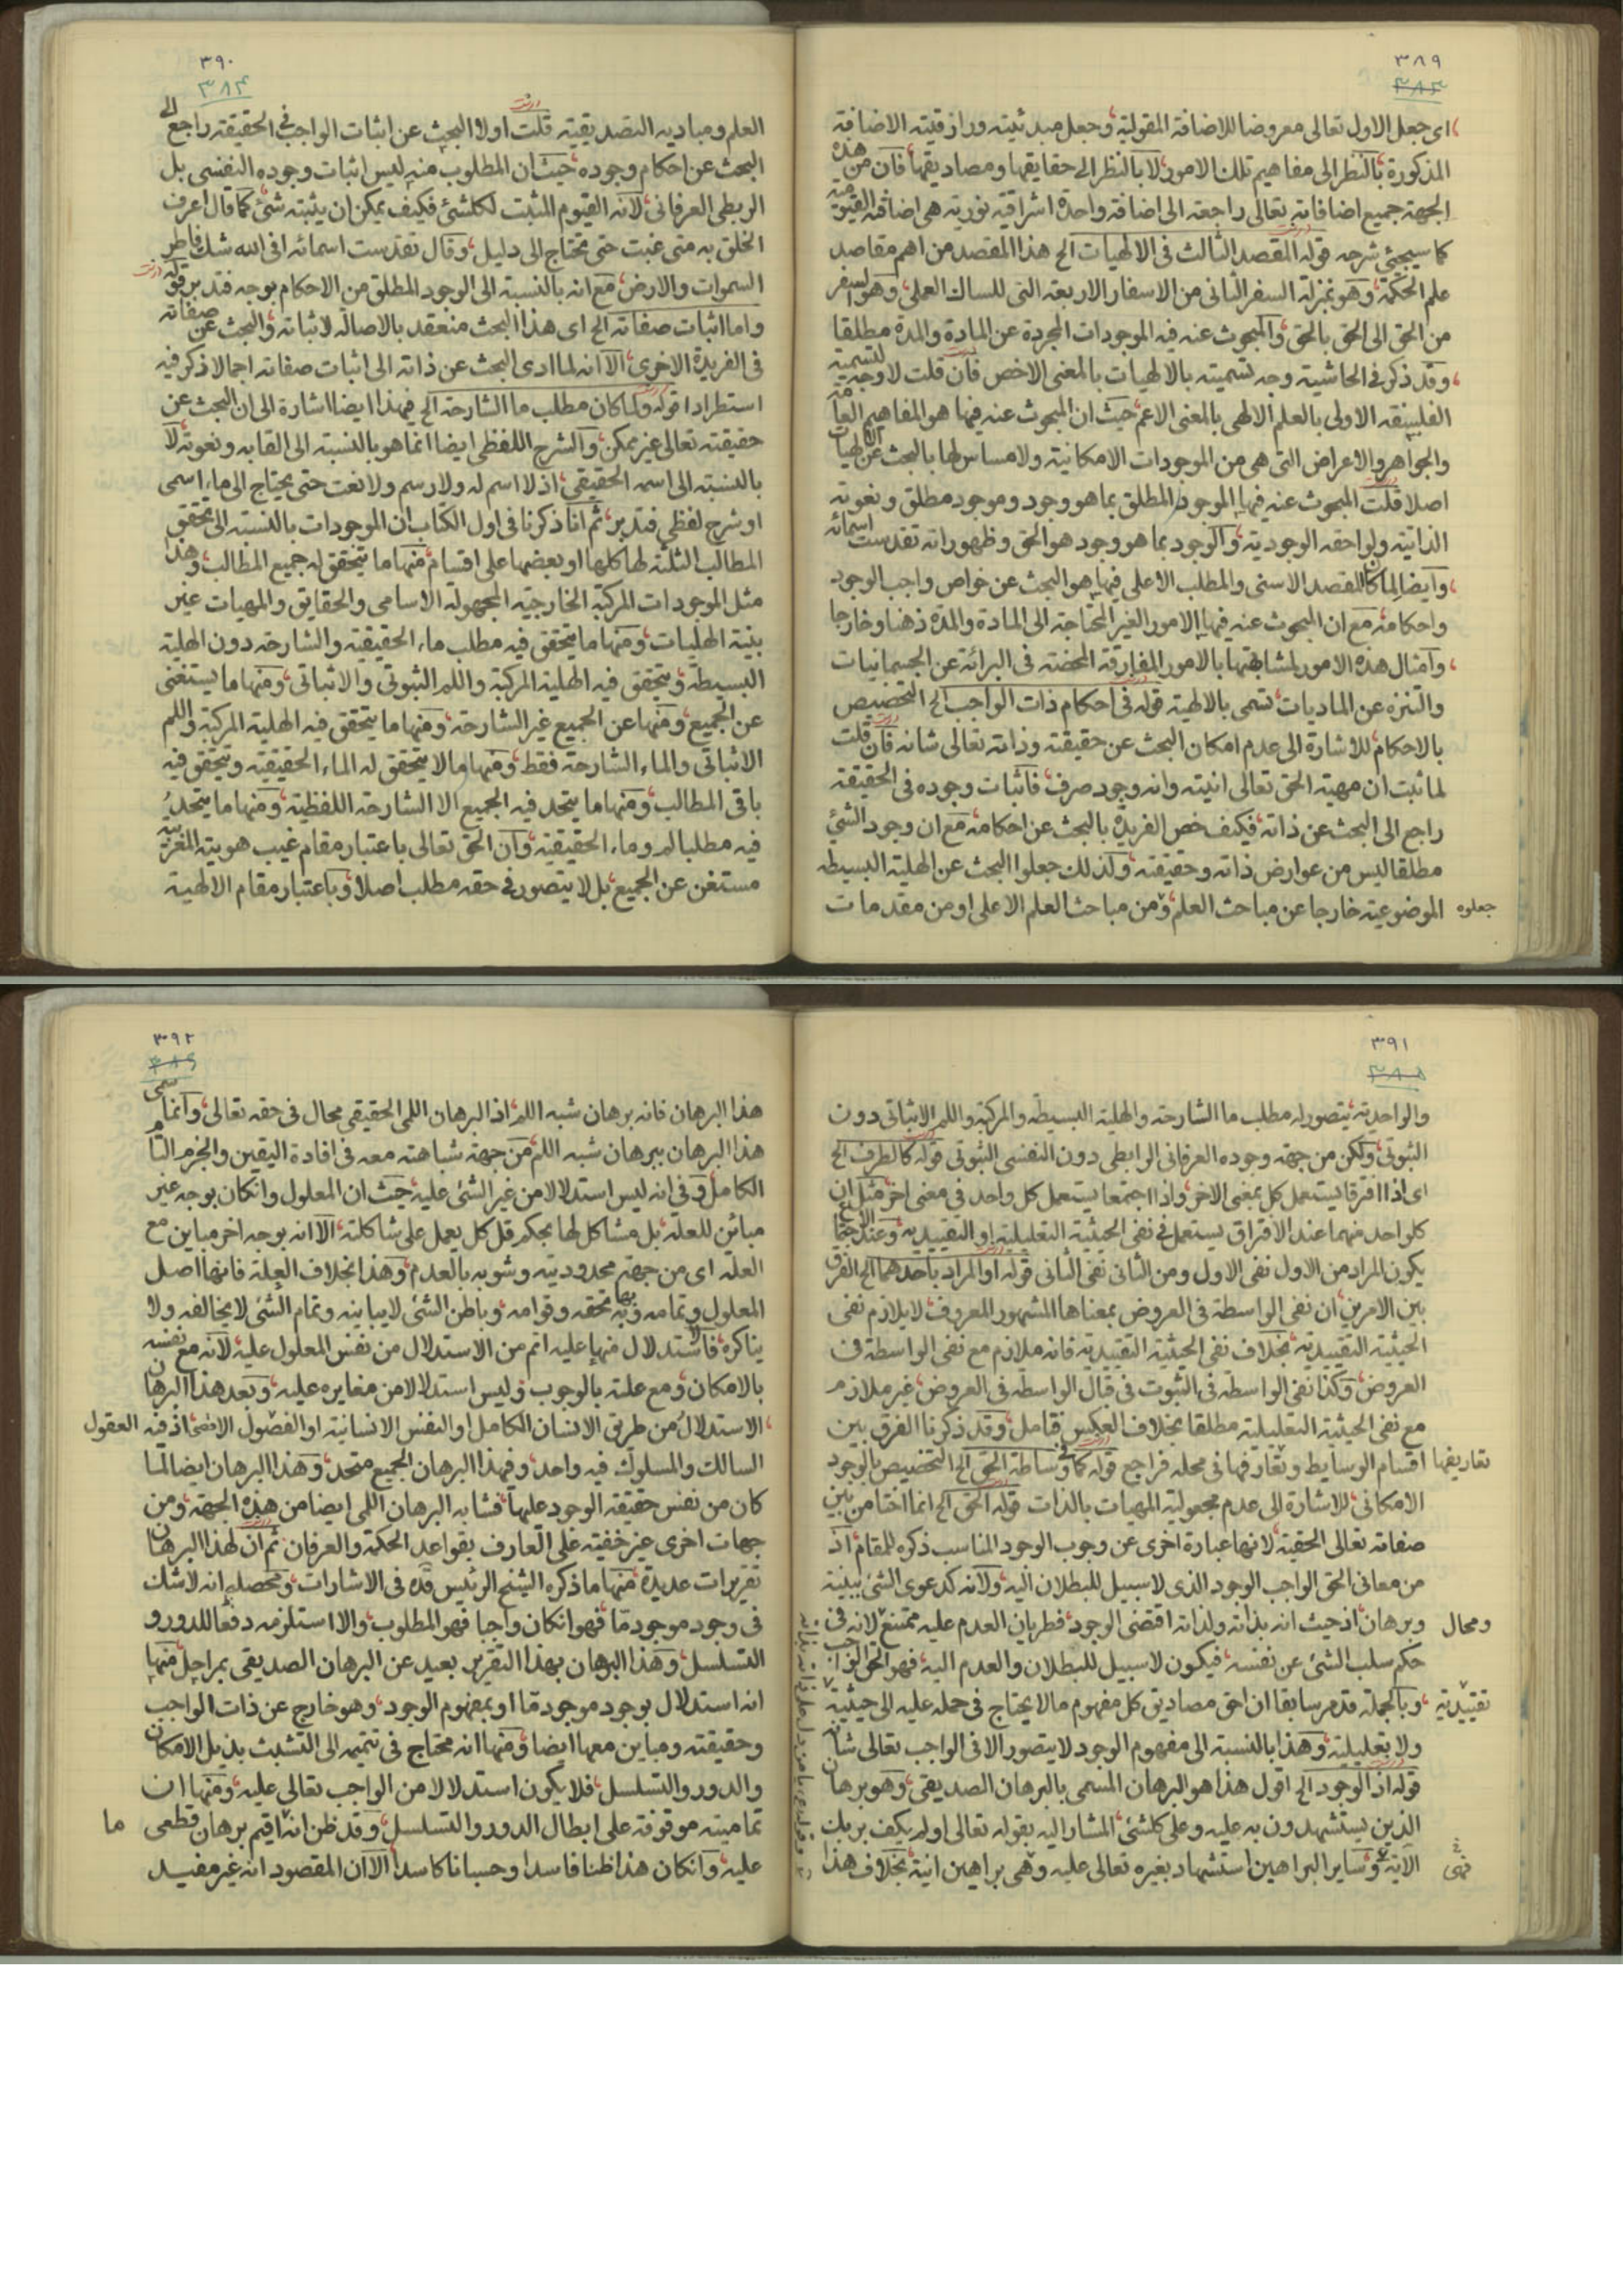 ٣٨٩
٣٨٣
ای جعل الاول تعالی معروضا للاضافة المقولیة، وجعل مبدئیته ورازقیته الاضافة
المذکورة، بالنظر الی مفاهیم تلک الامور، لا بالنظر الی حقایقها ومصادیقها، فان من هذه
الجهة جمیع اضافاته تعالی راجعة الی اضافة واحدة اشراقیة نوریة هی اضافته القیومیة
کما سیجیئ شرحه قوله المقصد الثالث فی الالهیات الخ هذا المقصد من اهم مقاصد
علم الحکمة، وهو بمنزلة السفر الثانی من الاسفار الاربعة التی للسالک العملی، وهو السفر
من الحق الی الحق بالحق، والمبحوث عنه فیه الموجودات المجردة عن المادة والمدة مطلقا
، وقد ذکر فی الحاشیة وجه تسمیته بالالهیات بالمعنی الاخص فان قلت لا وجه لتسمیة
الفلسفة الاولی بالعلم الالهی بالمعنی الاعم، حیث ان المبحوث عنه فیها هو المفاهیم العامة
والجواهر والاعراض التی هی من الموجودات الامکانیة ولا مساس لها بالبحث عن الالهیات
اصلا قلت المبحوث عنه فیها الموجود المطلق بما هو وجود وموجود مطلق ونعوته
الذاتیة ولواحقه الوجودیة، والوجود بما هو وجود هو الحق وظهوراته تقدست اسمائه
، وایضا لما کان المقصد الاسنی والمطلب الاعلی فیها هو البحث عن خواص واجب الوجود
واحکامه، مع ان المبحوث عنه فیها الامور الغیر المحتاجة الی المادة والمدة ذهنا وخارجا
، وامثال هذه الامور لمشابهتها بالامور المفارقة المحضة فی البرائة عن الجسمانیات
والتنزه عن المادیات، تسمی بالالهیة قوله فی احکام ذات الواجب الخ التخصیص
بالاحکام، للاشارة الی عدم امکان البحث عن حقیقته وذاته تعالی شانه فان قلت
لما ثبت ان مهیة الحق تعالی انیته وانه وجود صرف، فاثبات وجوده فی الحقیقة
راجع الی البحث عن ذاته، فکیف خص الفریدة بالبحث عن احکامه، مع ان وجود الشیئ
مطلقا لیس من عوارض ذاته وحقیقته، ولذلک جعلوا البحث عن الهلیة البسیطة
الموضوعیة خارجا عن مباحث العلم، ومن مباحث العلم الاعلی او من مقدمات
جعلوه
٣٩٠
٣٨٤
العلم ومبادیه التصدیقیة قلت اولا البحث عن اثبات الواجب فی الحقیقة راجع الی
البحث عن احکام وجوده، حیث ان المطلوب منه لیس اثبات وجوده النفسی بل
الربطی العرفانی، لانه القیوم المثبت لکلشیئ فکیف یمکن ان یثبته شیئ، کما قال اعرف
الخلق به متی غبت حتی تحتاج الی دلیل، وقال تقدست اسمائه افی الله شک فاطر
السموات والارض، مع انه بالنسبة الی الوجود المطلق من الاحکام بوجه فتدبر قوله
واما اثبات صفاته الخ ای هذا البحث منعقد بالاصالة لاثباته، والبحث عن صفاته
فی الفریدة الاخری، الا انه لما ادی البحث عن ذاته الی اثبات صفاته اجمالا ذکر فیه
استطرادا قوله ولما کان مطلب ما الشارحة الخ فهذا ایضا اشارة الی ان البحث عن
حقیقته تعالی غیر ممکن، والشرح اللفظی ایضا انما هو بالنسبة الی القابه ونعوته، لا
بالنسبة الی اسمه الحقیقی، اذ لا اسم له ولا رسم ولا نعت حتی یحتاج الی ماء اسمی
او شرح لفظی فتدبر، ثم انا ذکرنا فی اول الکتاب ان الموجودات بالنسبة الی تحقق
المطالب الثلثة لها کلها او بعضها علی اقسام، منها ما یتحقق له جمیع المطالب، وهذا
مثل الموجودات المرکبة الخارجیة المجهولة الاسامی والحقایق والمهیات غیر
بینة الهلیات، ومنها ما یتحقق فیه مطلب ماء الحقیقیة والشارحة دون الهلیة
البسیطة، ویتحقق فیه الهلیة المرکبة واللم الثبوتی والاثباتی، ومنها ما یستغنی
عن الجمیع، ومنها عن الجمیع غیر الشارحة، ومنها ما یتحقق فیه الهلیة المرکبة واللم
الاثباتی والماء الشارحة فقط، ومنها ما لا یتحقق له الماء الحقیقیة ویتحقق فیه
باقی المطالب، ومنها ما یتحد فیه الجمیع الا الشارحة اللفظیة، ومنها ما یتحد
فیه مطلبا لم وماء الحقیقیة، وان الحق تعالی باعتبار مقام غیب هویته المغربیة
مستغن عن الجمیع، بل لا یتصور فی حقه مطلب اصلا، وباعتبار مقام الالهیة
٣٩١
٣٨٥
والواحدیة، یتصور له مطلب ما الشارحة والهلیة البسیطة والمرکبة واللم الاثباتی دون
الثبوتی، ولکن من جهة وجوده العرفانی الرابطی دون النفسی الثبوتی قوله کالظرف الخ
ای اذا افترقا یستعمل کل بمعنی الاخر، واذا اجتمعا یستعمل کل واحد فی معنی اخر، مثل ان
کلواحد منهما عند الافتراق یستعمل فی نفی الحیثیة التعلیلیة او التقییدیة، وعند الاجتماع
یکون المراد من الاول نفی الاول ومن الثانی نفی الثانی قوله او المراد باحدهما الخ الفرق
بین الامرین، ان نفی الواسطة فی العروض بمعناها المشهور المعروف، لا یلازم نفی
الحیثیة التقییدیة، بخلاف نفی الحیثیة التقییدیة فانه ملازم مع نفی الواسطة فی
العروض، وکذا نفی الواسطة فی الثبوت فی قبال الواسطة فی العروض، غیر ملازم
مع نفی الحیثیة التعلیلیة مطلقا بخلاف العکس فتامل، وقد ذکرنا الفرق بین
اقسام الوسایط وتعارفها فی محله فراجع قوله کما فی وساطة الحق الخ التخصیص بالوجود
تعاریفها
الامکانی، للاشارة الی عدم مجعولیة المهیات بالذات قوله الحق الخ انما اختار من بین
صفاته تعالی الحقیة، لانها عبارة اخری عن وجوب الوجود المناسب ذکره للمقام، اذ
من معانی الحق الواجب الوجود الذی لا سبیل للبطلان الیه، ولانه کدعوی الشیئ ببینة
وبرهان، اذ حیث انه بذاته ولذاته اقتضی الوجود، فطریان العدم علیه ممتنع، لانه فی
ومحال
حکم سلب الشیئ عن نفسه، فیکون لا سبیل للبطلان والعدم الیه، فهو الحق الواجب
، وبالجملة قد مر سابقا ان احق مصادیق کل مفهوم ما لا یحتاج فی حمله علیه الی حیثیة
تقییدیة
ولا تعلیلیة، وهذا بالنسبة الی مفهوم الوجود لا یتصور الا فی الواجب تعالی شانه
قوله اذ الوجود الخ اقول هذا هو البرهان المسمی بالبرهان الصدیقی، وهو برهان
الذین یستشهدون به علیه وعلی کلشیئ، المشار الیه بقوله تعالی اولم یکف بربک
الآیة، وسایر البراهین استشهاد بغیره تعالی علیه وهی براهین انیة، بخلاف هذا
فهی
٣٩٢
٣٨٦
هذا البرهان فانه برهان شبه اللم، اذ البرهان اللمی الحقیقی محال فی حقه تعالی، وانما سمی
هذا البرهان ببرهان شبه اللم، من جهة شباهته معه فی افادة الیقین والجزم التام
الکامل، وفی انه لیس استدلالا من غیر الشیئ علیه، حیث ان المعلول وانکان بوجه غیر
مبائن للعلة، بل مشاکل لها بحکم قل کل یعمل علی شاکلته، الا انه بوجه اخر مباین مع
العلة ای من جهة محدودیته وشوبه بالعدم، وهذا بخلاف العلة فانها اصل
المعلول وتمامه وبها تحققه وقوامه، وباطن الشیئ لا یباینه وتمام الشیئ لا یخالفه ولا
یناکره، فالاستدلال منها علیه اتم من الاستدلال من نفس المعلول علیه، لانه مع نفسه
بالامکان، ومع علته بالوجوب، ولیس استدلالا من مغایره علیه، وبعد هذا البرهان
، الاستدلال من طریق الانسان الکامل او النفس الانسانیة او الفصول الاخص، اذ فیه
العقول
السالک والمسلوک فیه واحد، وفی هذا البرهان الجمیع متحد، وهذا البرهان ایضا لما
کان من نفس حقیقة الوجود علیها، فشابه البرهان اللمی ایضا من هذه الجهة، ومن
جهات اخری غیر خفیة علی العارف بقواعد الحکمة والعرفان ثم ان لهذا البرهان
تقریرات عدیدة، منها ما ذکره الشیخ الرئیس قده فی الاشارات، ومحصله انه لا شک
فی وجود موجود ما، فهو انکان واجبا فهو المطلوب، والا استلزمه دفعا للدور و
التسلسل، وهذا البرهان بهذا التقریر بعید عن البرهان الصدیقی بمراحل، منها
انه استدلال بوجود موجود ما او بمفهوم الوجود، وهو خارج عن ذات الواجب
وحقیقته ومباین معها ایضا، ومنها انه محتاج فی تتمیمه الی التشبث بذیل الامکان
والدور والتسلسل، فلا یکون استدلالا من الواجب تعالی علیه، ومنها ان
تمامیته موقوفة علی ابطال الدور والتسلسل، وقد ظن انه اقیم برهان قطعی
ما
علیه، وانکان هذا ظنا فاسدا وحسبانا کاسدا الا ان المقصود انه غیر مفید